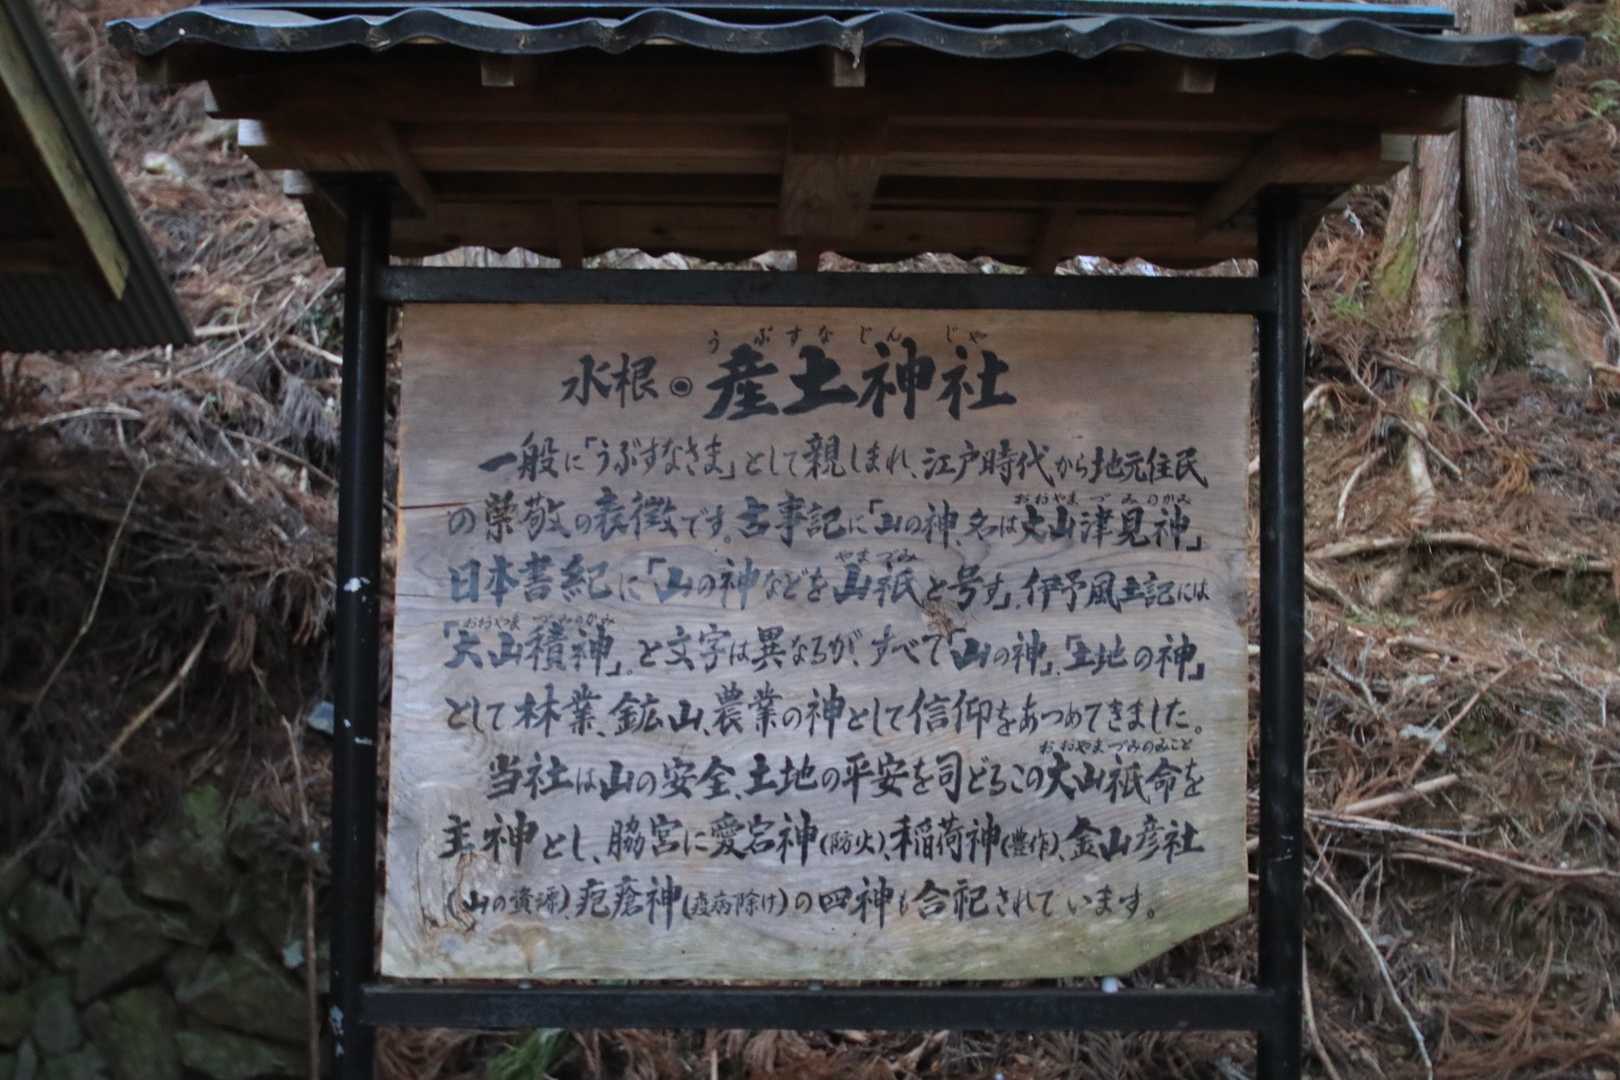 うぶすなじんじゃ
水根◎産土神社
一般に「うぶすなさま」として親しまれ、江戸時代から地元住民
の崇敬の表徴です。古事記に「山の神、名は大山津見神」
おおやまづみのかみ
日本書紀に「山の神などを山祇と号す」、伊予風土記には
やまづみ
「大山積神」。と文字は異なるが、すべて「山の神」、「土地の神」
おおやまづみのかみ
として林業、鉱山、農業の神として信仰をあつめてきました。
当社は山の安全、土地の平安を司どるこの大山祇命を
おおやまづみのみこと
主神とし、脇宮に愛宕神(防火)、稲荷神(豊作)、金山彦社
(山の資源)、疱瘡神(疫病除け)の四神も合祀されています。